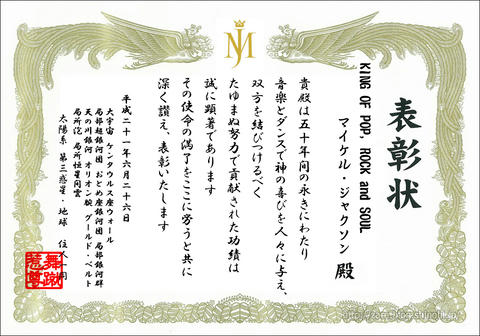 表彰状
KING OF POP, ROCK and SOUL
マイケル・ジャクソン 殿
貴殿は五十年間の永きにわたり
音楽とダンスで神の喜びを人々に与え、
双方を結びつけるべく
たゆまぬ努力で貢献された功績は
誠に顕著であります
その使命の満了をここに労うと共に
深く讃え、表彰いたします
平成二十一年六月二十六日
大宇宙 ケンタウルス座ウォール
局部超銀河団 おとめ座銀河団 局部銀河群
天の川銀河 オリオン腕 グールド・ベルト
局所泡 局所恒星間雲
太陽系 第三惑星・地球 住人一同
MJ